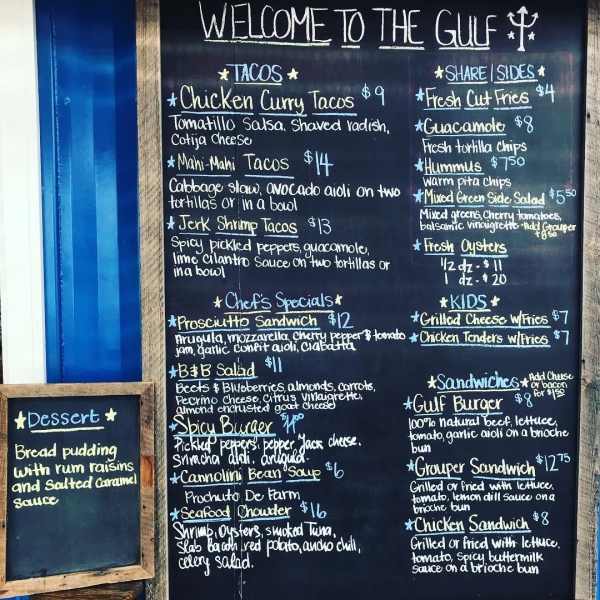 WELCOME TO THE GULF
TACOS
Chicken Curry Tacos $9
Tomatillo Salsa, Shaved radish,
Cotija Cheese
Mahi-Mahi Tacos $14
Cabbage slaw, avocado aioli on two
tortillas or in a bowl
Jerk Shrimp Tacos $13
Spicy pickled peppers, guacamole,
lime cilantro sauce on two tortillas or
in a bowl
Chef's Specials
Prosciutto Sandwich $12
Arugula, mozzarella, cherry pepper & tomato
jam, garlic confit aioli, ciabatta
B&B Salad $11
Beets & Blueberries, almonds, carrots,
Pecrino cheese, citrus vinaigrette,
almond encrusted goat cheese
Spicy Burger
Pickled peppers, pepper jack cheese,
Sriracha aioli, arugula.
Cannolini Bean Soup $6
Prochuto De Parm
Seafood Chowder $16
Shrimp, Oysters, smoked Tuna,
Slab Bacon, red potato, ancho chili,
celery salad.
SHARE | SIDES
Fresh Cut Fries $4
Guacamole $8
Fresh tortilla chips
Hummus $7.50
Warm pita chips
Mixed Green Side Salad $5.50
Mixed greens, Cherry tomatoes,
balsamic vinaigrette *Add Grouper
+8.50
Fresh Oysters
1/2 dz - $11
1 dz - $20
KIDS
Grilled Cheese w/Fries $7
Chicken Tenders w/Fries $7
Sandwiches *Add Cheese
or bacon
for $1.50
Gulf Burger $8
100% natural beef, lettuce,
tomato, garlic aioli on a brioche
bun
Grouper Sandwich $12.75
Grilled or fried with lettuce,
tomato, lemon dill sauce on a
brioche bun
Chicken Sandwich $8
Grilled or fried with lettuce,
tomato, spicy buttermilk
sauce on a brioche bun
Dessert
Bread pudding
with rum raisins
and Salted Caramel
Sauce